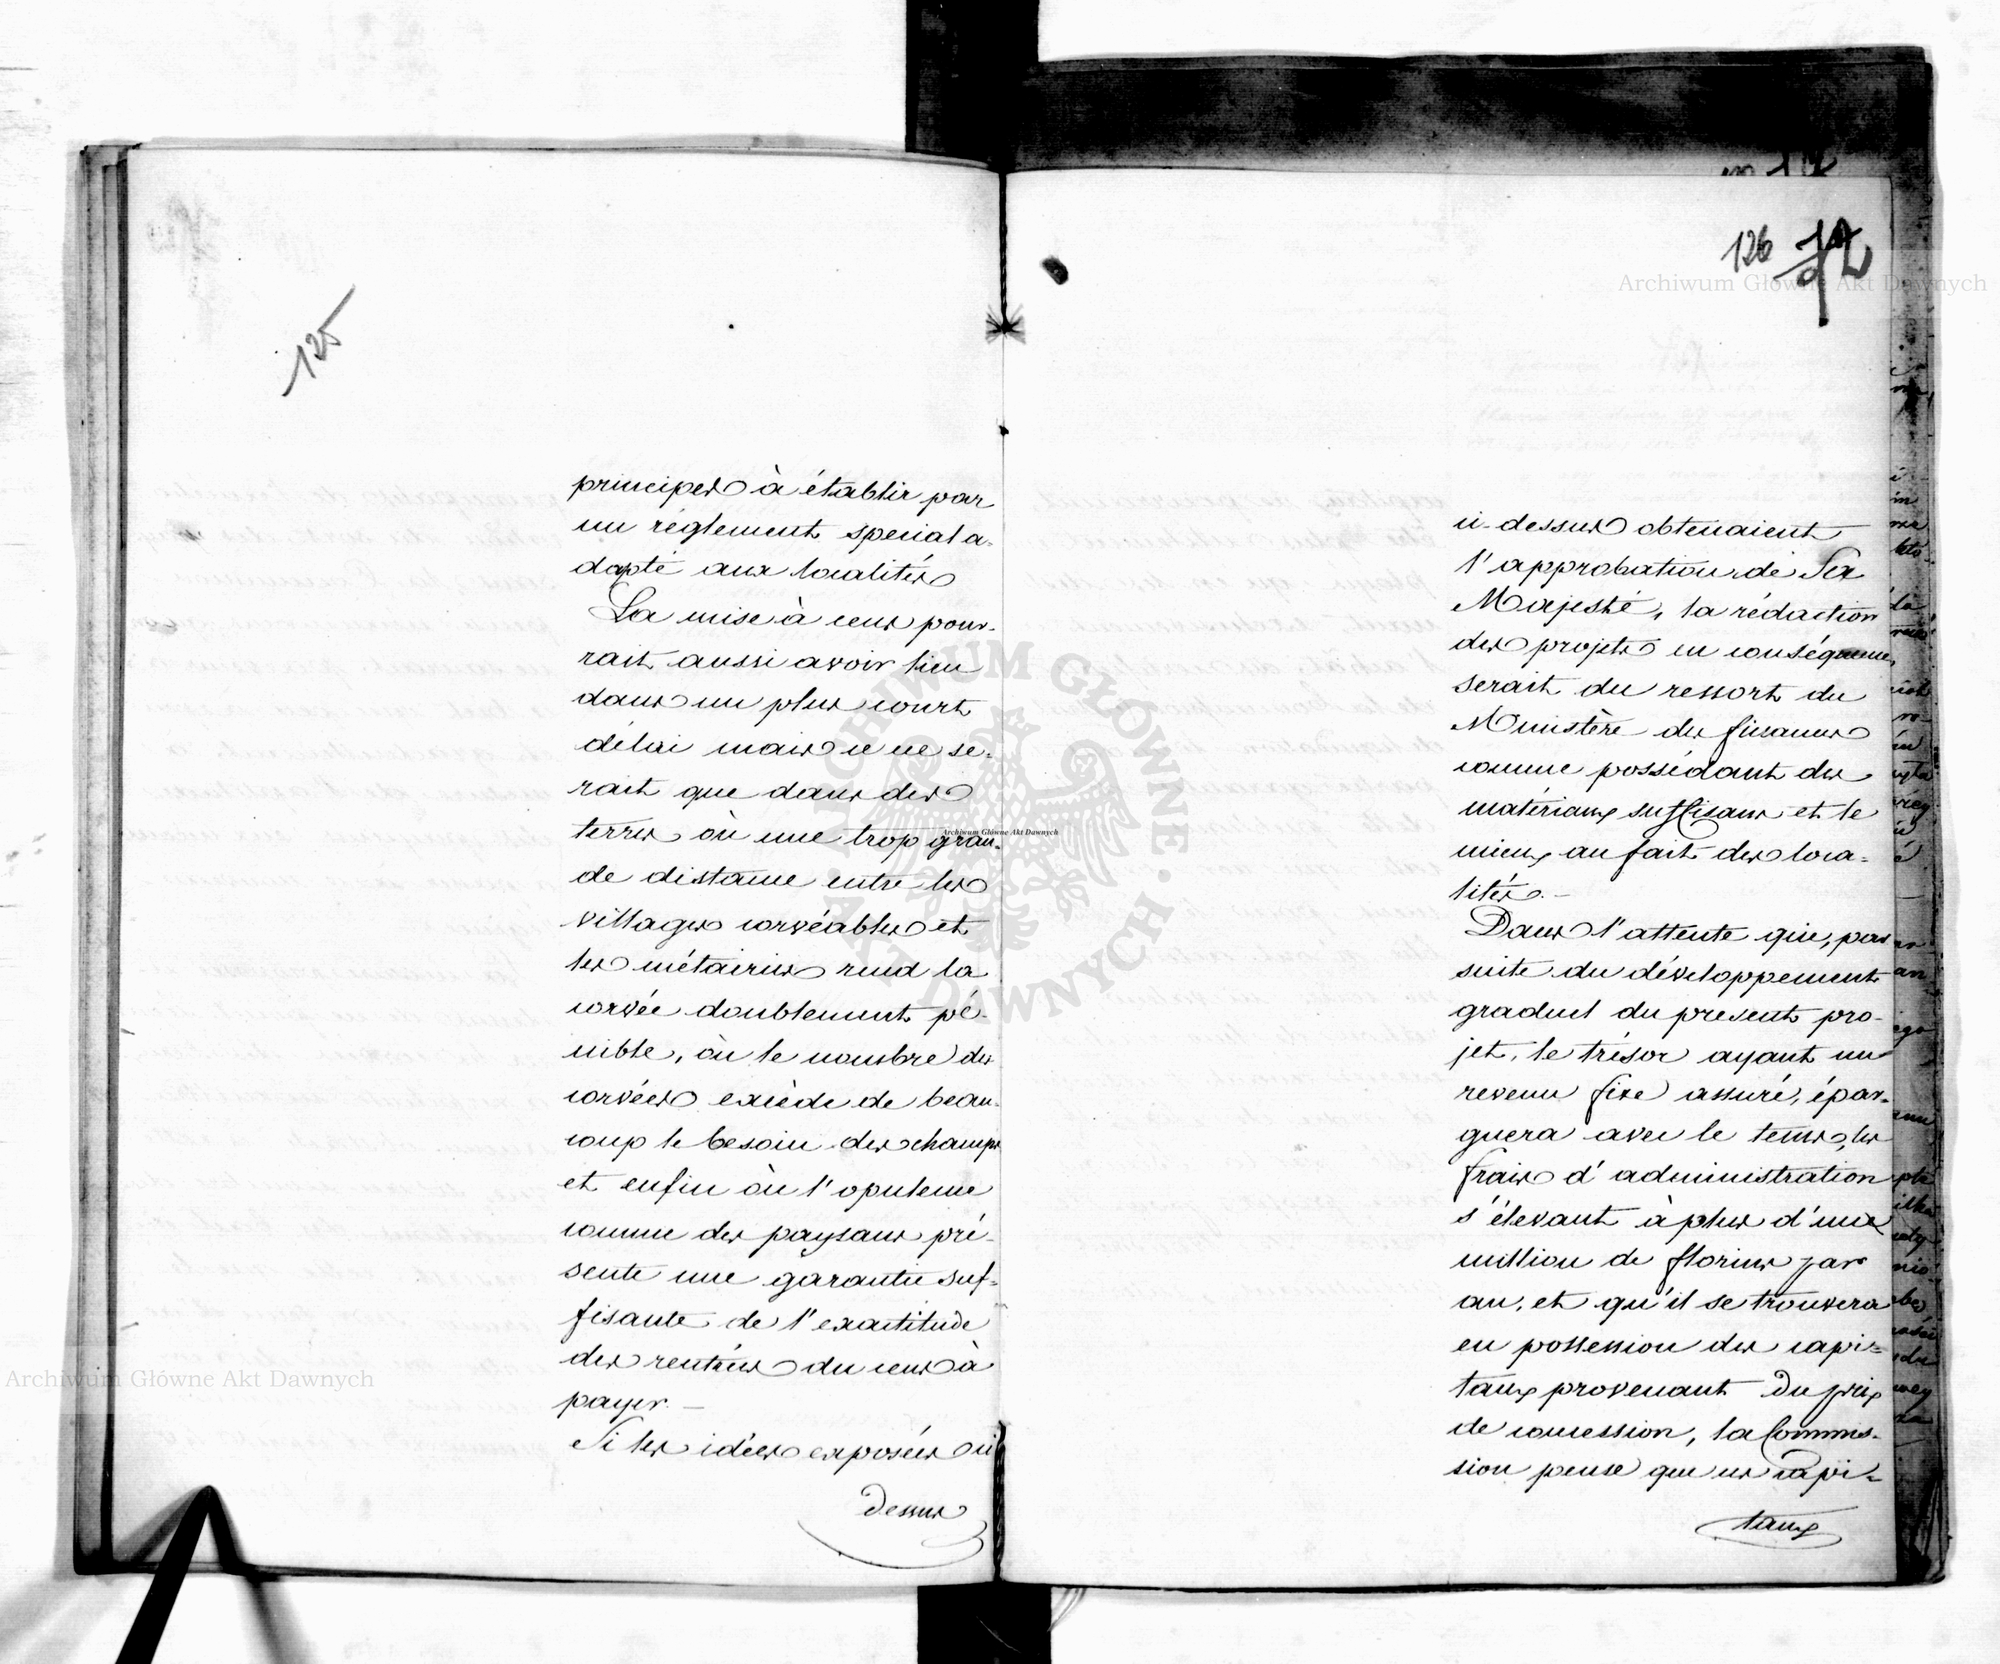 125
principes à établir par
un réglement special a-
dapté aux localités
La mise à cens pour-
rait aussi avoir lieu
dans un plus court
délai mais ce ne se-
rait que dans des
terres où une trop gran-
de distance entre les
villages corvéables et
les métairies rend la
corvée doublement pé-
nible, où le nombre des
corvées excède de beau-
coup le besoin des champs
et enfin où l'opulence
connue des paysans pré-
sente une garantie suf-
fisante de l'exactitude
des rentrées du cens à
payer. —
Si les idées exposées ci
dessus
126 72
ci-dessus obtenaient
l'approbation de Sa
Majesté, la rédaction
des projets en conséquence,
serait du ressort du
Ministère des finances
comme possédant des
matériaux suffisans et le
mieux au fait des loca-
lités. —
Dans l'attente que, par
suite du développement
graduel du present pro-
jet, le trésor ayant un
revenu fixe assuré, épar-
gnera avec le tems, les
frais d'administration
s'élevant à plus d'un
million de florins par
an, et qu'il se trouvera
en possession des capi-
taux provenant du prix
de concession, la Commis-
sion pense que ces capi-
taux
Archiwum Główne Akt Dawnych
Archiwum Główne Akt Dawnych
Archiwum Główne Akt Dawnych
ARCHIWUM GŁÓWNE AKT DAWNYCH